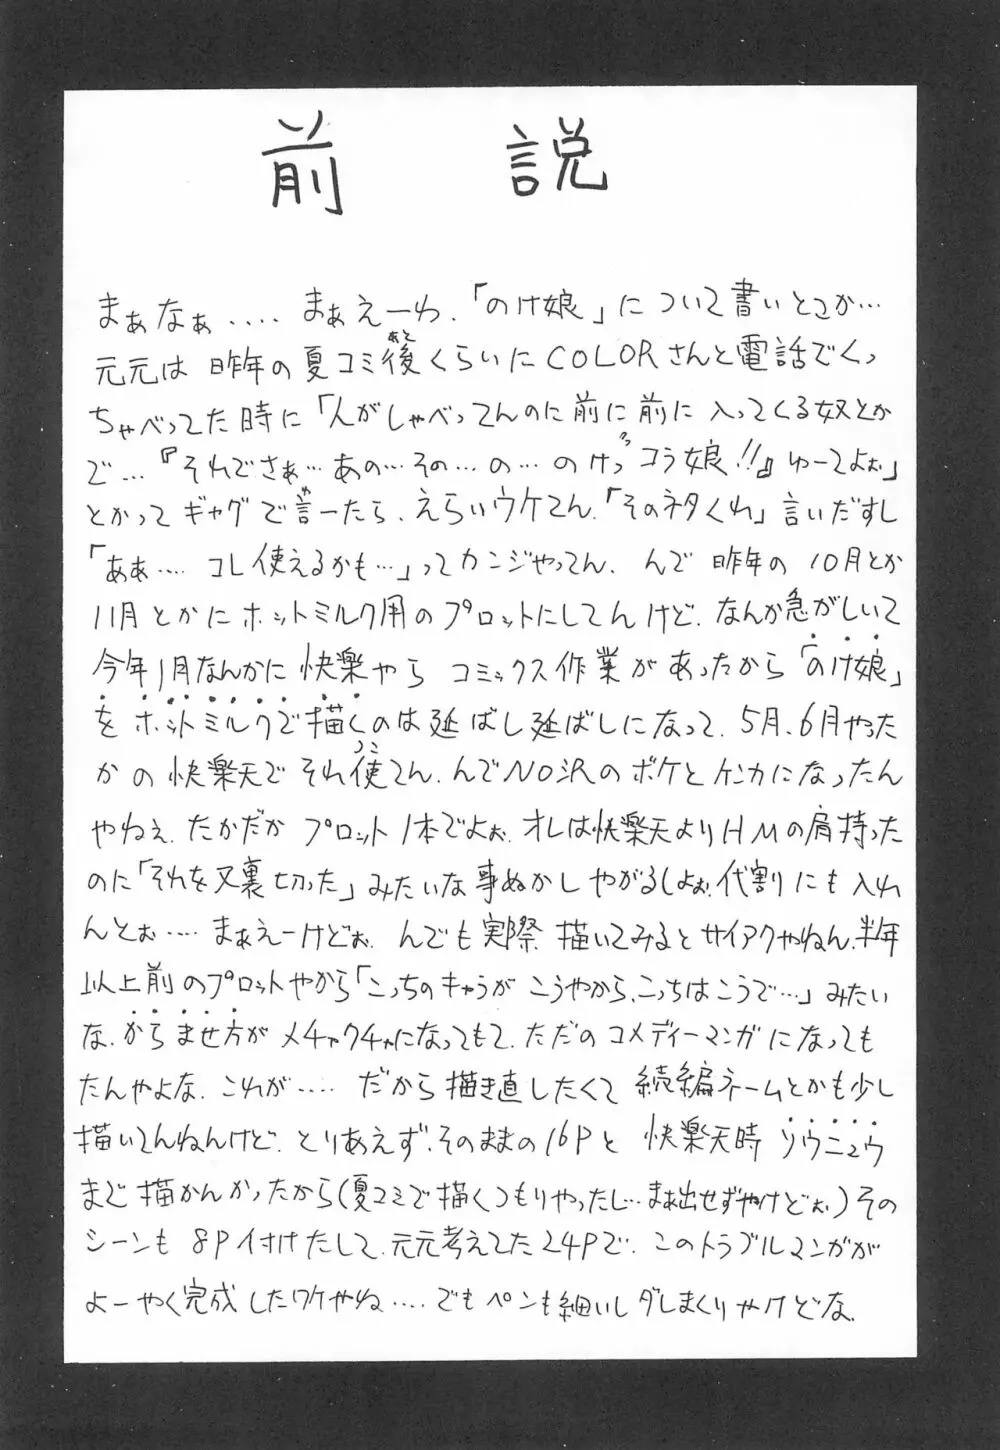 前説
まぁなぁ.... まぁえーわ.「のけ娘」について書いとこか…
元元は昨年の夏コミ後くらいにCOLORさんと電話でくっ
あと
ちゃべってた時に「人がしゃべってんのに前に前に入ってくる奴とか
で…『それでさぁ…あの…その…の…のけっコラ娘!!』ゆーてよぉ」
とかってギャグで言ーたら、えらいウケてん.「そのネタくれ」言いだすし
や
「ああ.... コレ使えるかも…」ってカンジやってん. んで昨年の10月とか
11月とかにホットミルク用のプロットにしてんけど. なんか急がしいて
今年1月なんかに快楽やらコミックス作業があったから「のけ娘」
をホットミルクで描くのは延ばし延ばしになって. 5月、6月やった
かの快楽天でそれ使てん. んでNO沢のボケとケンカになったん
つこ
やねぇ. たかだかプロット1本でよぉ. オレは快楽天よりHMの肩持った
のに「それを又裏切った」みたいな事ぬかしやがるしよぉ. 代割にも入れ
んとぉ.... まぁえーけどぉ. んでも実際描いてみるとサイアクやねん. 半年
以上前のプロットやから「こっちのキャラがこうやから、こっちはこうで…」みたい
な. からませ方がメチャクチャになってもて. ただのコメディーマンガになっても
たんやよな. これが.... だから描き直したくて続編ネームとかも少し
描いてんねんけど. とりあえず、そのままの16Pと快楽天時ソウニュウ
まで描かんかったから(夏コミで描くつもりやったし…まぁ出せずやけどぉ)その
シーンも8P付けたして. 元元考えてた24Pで. このトラブルマンガが
よーやく完成したワケやね.... でもペンも細いしダしまくりやけどな.